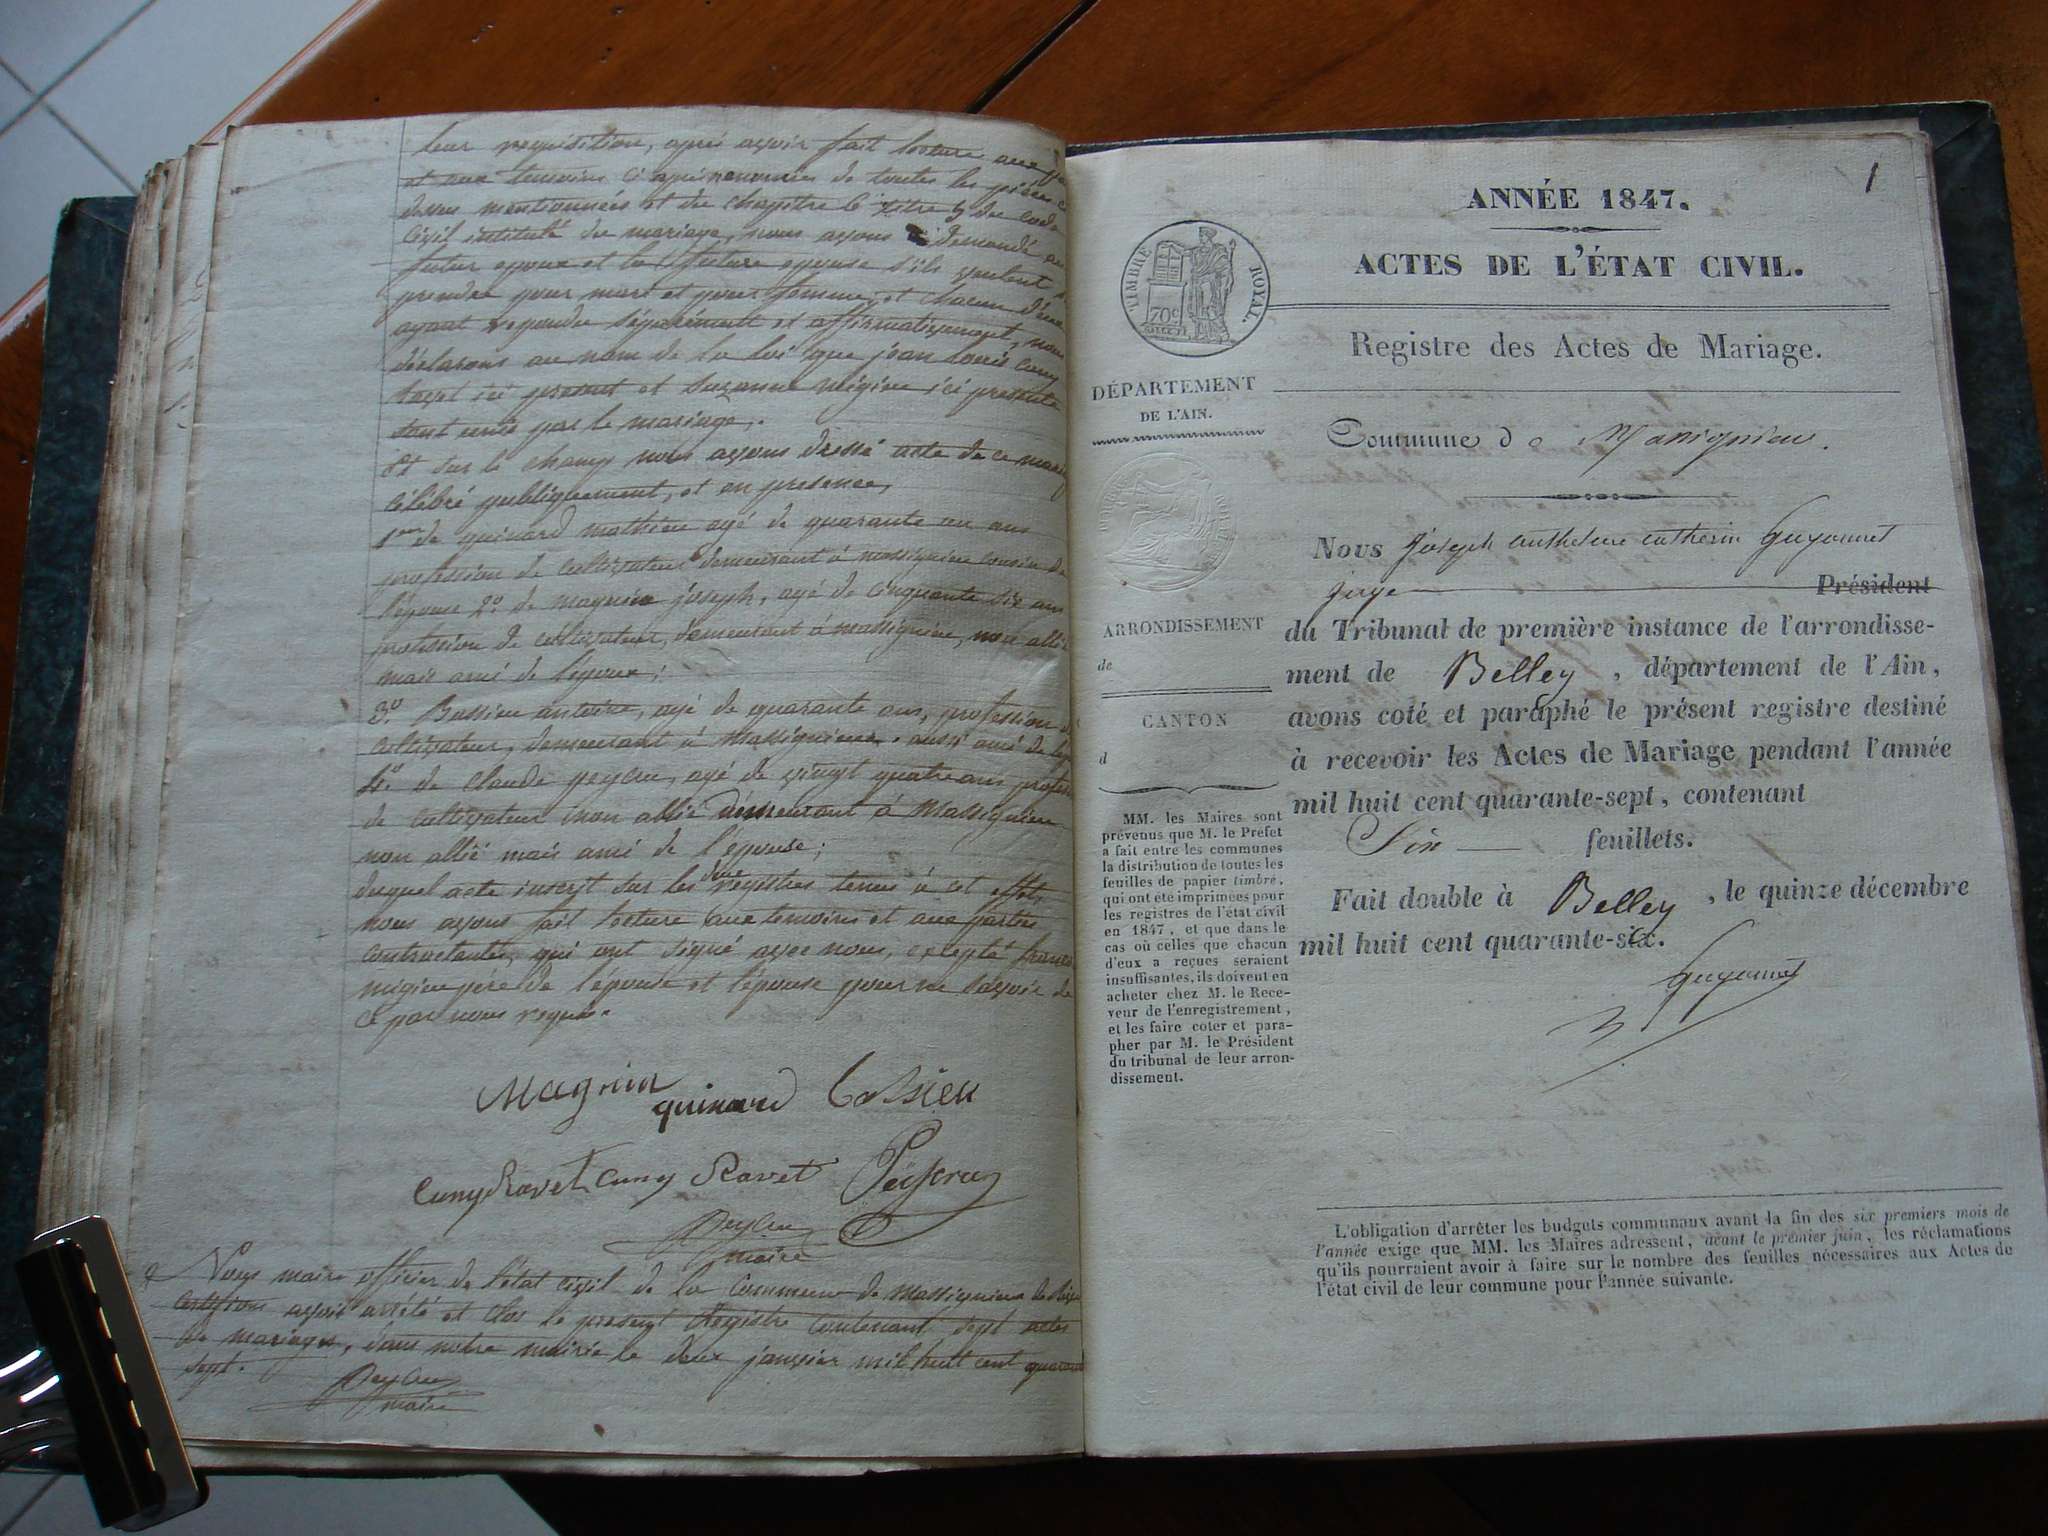 leur requisition, après avoir fait lecture aux
et aux temoins ci après nommés de toutes les pièces ci
dessus mentionnées et du chapitre 6 titre 5 du code
Civil intitulé du mariage, nous avons demandé au
futur epoux et la future epouse s'ils veulent se
prendre pour mari et pour femme, et chacun d'eux
ayant repondu séparément et affirmativement, nous
déclarons au nom de la loi que jean Louis Cuny
ravet ici present et Suzanne migieu ici presente
sont unis par le mariage.
Et sur le champ nous avons dressé acte de ce mariage
célébré publiquement, et en presence,
1er de quinard mathieu agé de quarante un ans
profession de cultivateur demeurant à massignieu cousin de
l'épouse 2º de magnin joseph, agé de cinquante six ans
profession de cultivateur, demeurant à massignieu, non allié
mais ami de l'époux;
3º Bassieu antoine, agé de quarante ans, profession de
cultivateur, demeurant à Massignieu, aussi ami de
4º de claude peycru, agé de vingt quatre ans
de cultivateur non allié demeurant à Massignieu
non allié mais ami de l'épouse;
duquel acte inscrit sur les deux registres tenus à cet effet,
nous avons fait lecture aux temoins et aux parties
contractantes, qui ont signé avec nous, excepté
migieu père de l'épouse et l'épouse pour ne savoir de
ce par nous requis.
Magnin quinard Bassieu
Cuny Ravet Cuny Ravet Peycru
Peycru
maire
Nous maire officier de l'état civil de la Commune de Massignieu de
Certifions avoir arrêté et clos le present Registre contenant sept actes
de mariages, dans notre mairie le deux janvier mil huit cent quarante
sept.
Peycru
maire
1
ANNÉE 1847.
ACTES DE L'ÉTAT CIVIL.
TIMBRE ROYAL.
70c
Registre des Actes de Mariage.
DÉPARTEMENT
DE L'AIN.
Commune de Massignieu.
Nous joseph anthelme Guyonnet
juge Président
du Tribunal de première instance de l'arrondisse-
ment de Belley, département de l'Ain,
avons coté et paraphé le présent registre destiné
à recevoir les Actes de Mariage pendant l'année
mil huit cent quarante-sept, contenant
Six feuillets.
Fait double à Belley, le quinze décembre
mil huit cent quarante-six.
Guyonnet
ARRONDISSEMENT
de
CANTON
d
MM. les Maires sont
prévenus que M. le Préfet
a fait entre les communes
la distribution de toutes les
feuilles de papier timbré,
qui ont été imprimées pour
les registres de l'état civil
en 1847, et que dans le
cas où celles que chacun
d'eux a reçues seraient
insuffisantes, ils doivent en
acheter chez M. le Rece-
veur de l'enregistrement,
et les faire coter et para-
pher par M. le Président
du tribunal de leur arron-
dissement.
L'obligation d'arrêter les budgets communaux avant la fin des six premiers mois de
l'année exige que MM. les Maires adressent, avant le premier juin, les réclamations
qu'ils pourraient avoir à faire sur le nombre des feuilles nécessaires aux Actes de
l'état civil de leur commune pour l'année suivante.